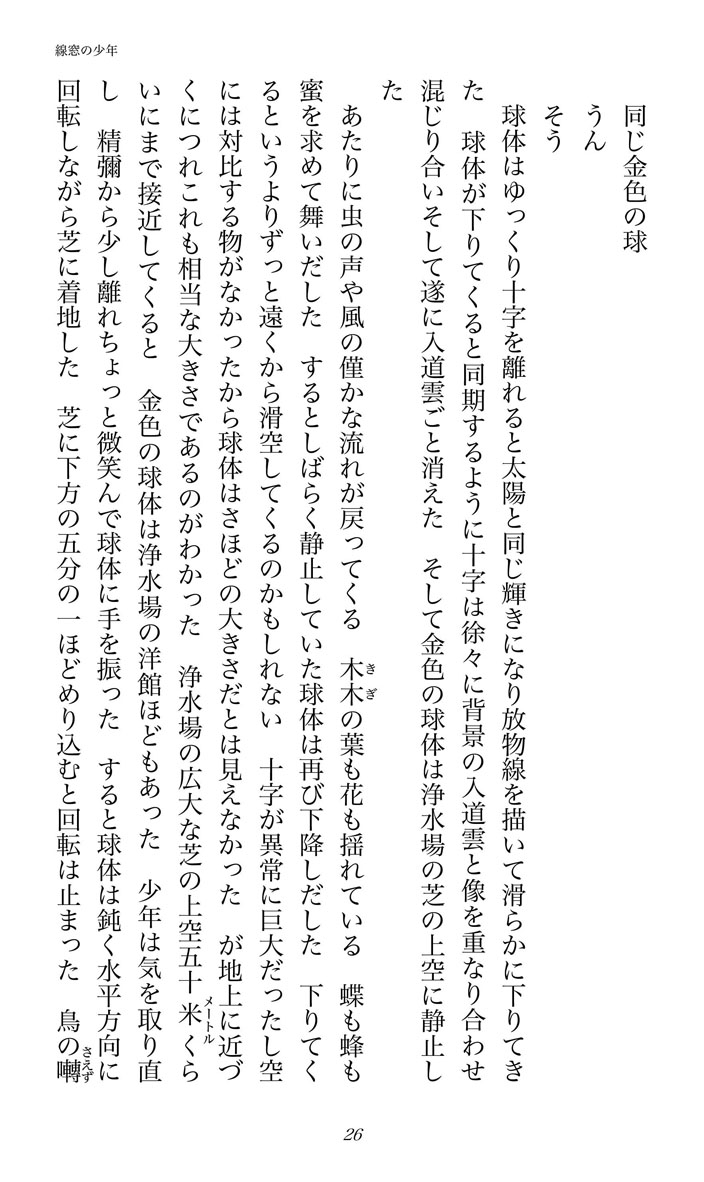 線窓の少年
同じ金色の球
うん
そう
球体はゆっくり十字を離れると太陽と同じ輝きになり放物線を描いて滑らかに下りてき
た　球体が下りてくると同期するように十字は徐々に背景の入道雲と像を重なり合わせ
混じり合いそして遂に入道雲ごと消えた　そして金色の球体は浄水場の芝の上空に静止し
た
あたりに虫の声や風の僅かな流れが戻ってくる　木木の葉も花も揺れている　蝶も蜂も
きぎ
蜜を求めて舞いだした　するとしばらく静止していた球体は再び下降しだした　下りてく
るというよりずっと遠くから滑空してくるのかもしれない　十字が異常に巨大だったし空
には対比する物がなかったから球体はさほどの大きさだとは見えなかった　が地上に近づ
くにつれこれも相当な大きさであるのがわかった　浄水場の広大な芝の上空五十米くら
メートル
いにまで接近してくると　金色の球体は浄水場の洋館ほどもあった　少年は気を取り直
し　精彌から少し離れちょっと微笑んで球体に手を振った　すると球体は鈍く水平方向に
回転しながら芝に着地した　芝に下方の五分の一ほどめり込むと回転は止まった　鳥の囀
さえず
26